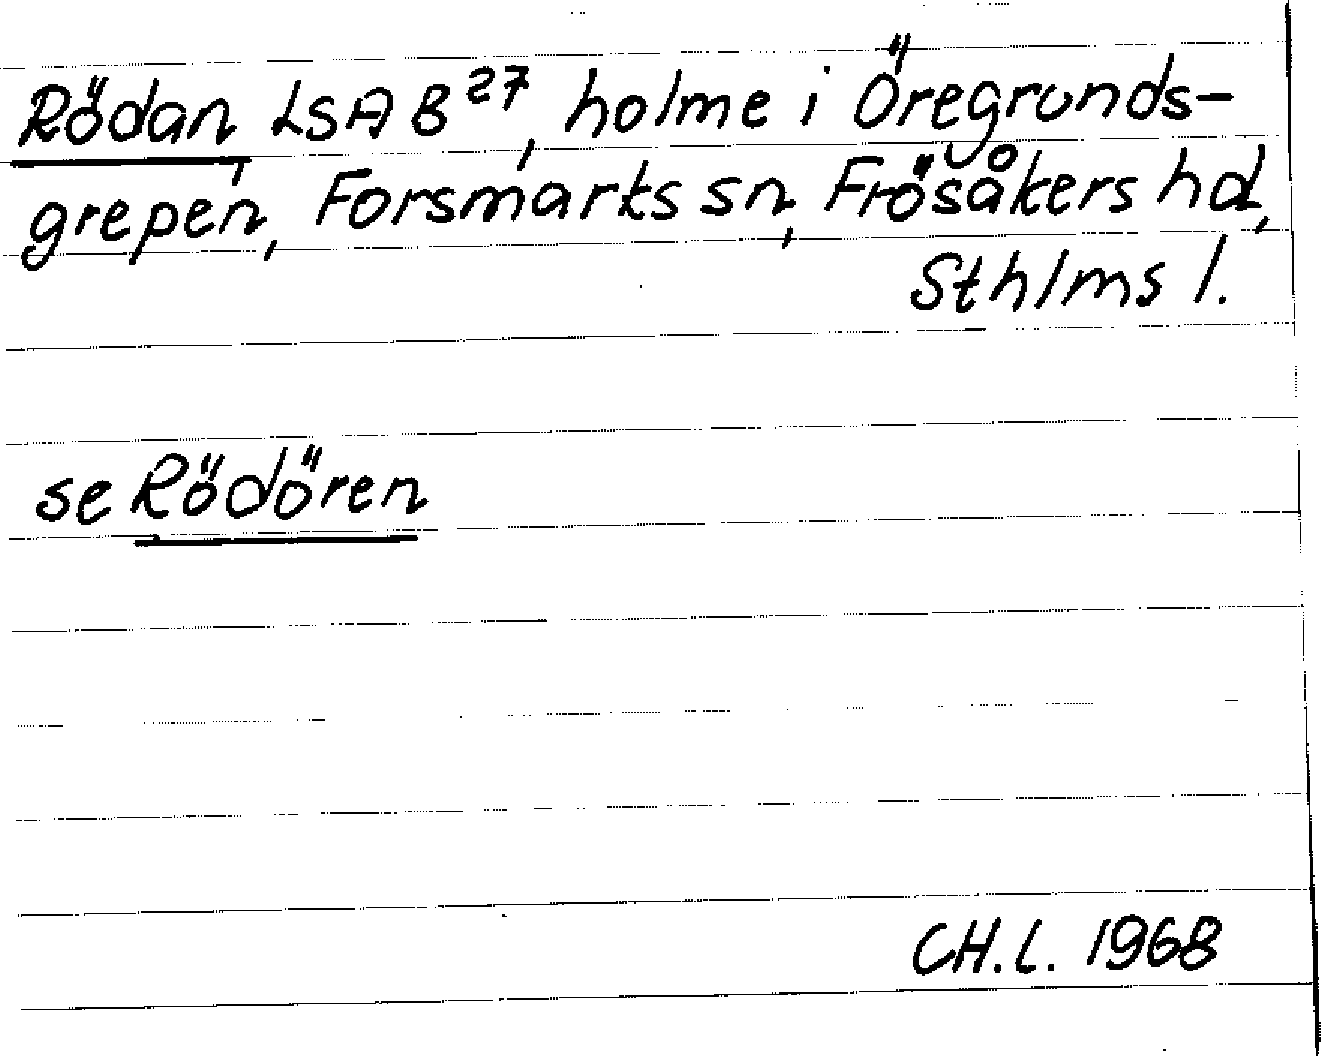 Rödan, LSA B²⁷, holme i Öregrunds-
grepen, Forsmarks sn, Frösåkers hd,
Sthlms l.
se Rödören
CH.L. 1968